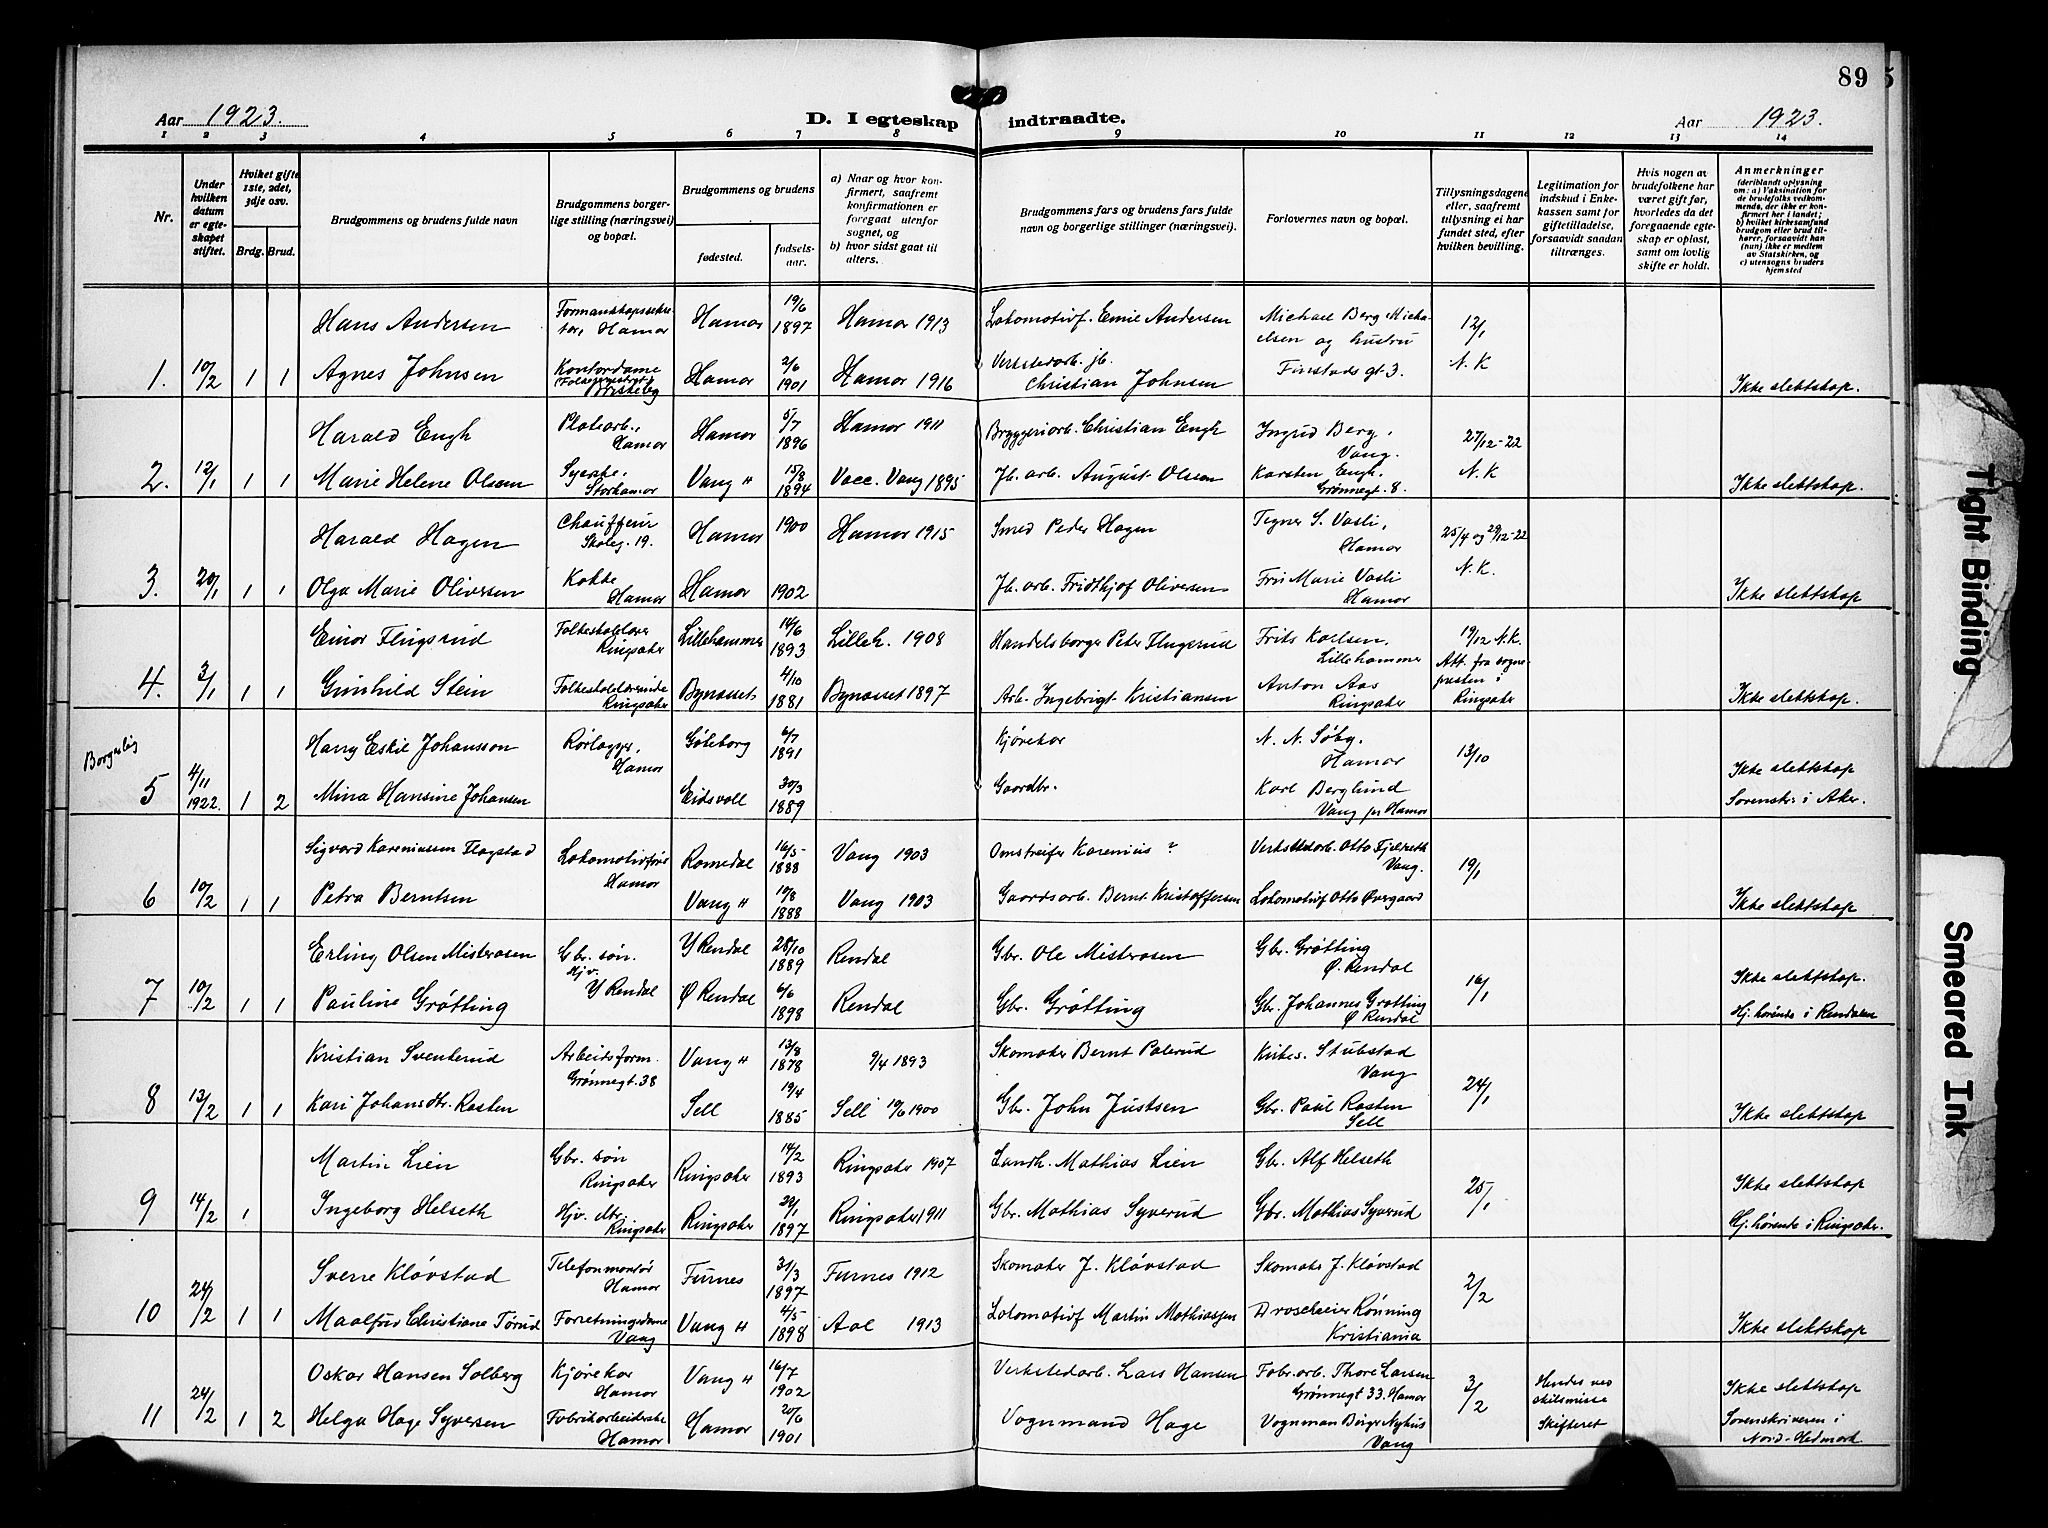 89
Aar 1923.
D. I egteskap indtraadte.
Aar 1923.
1 2 3 4 5 6 7 8 9 10 11 12 13 14
Nr.
Under hvilken datum er egteskapet stiftet.
Hviket gifte 1ste, 2det, 3dje osv.
Brdg. Brud.
Brudgommens og brudens fulde navn
Brudgommens borgerlige stilling (næringsvei) og bopæl.
Brudgommens og brudens
fødested.
fødselsaar.
a) Naar og hvor konfirmert, saafremt konfirmationen er foregaat utenfor sognet, og
b) hvor sidst gaat til alters.
Brudgommens fars og brudens fars fulde navn og borgerlige stillinger (næringsvei).
Forlovernes navn og bopæl.
Tillysningsdagene eller, saafremt tillysning ei har fundet sted, efter hvilken bevilling.
Legitimation for indskud i Enkekassen samt for giftetilladelse, forsaavidt saadan tiltrænges.
Hvis nogen av brudefolkene har været gift før, hvorledes da det foregaaende egteskap er opløst, samt om lovlig skifte er holdt.
Anmerkninger
(deriblandt oplysning om: a) Vaksination for de brudefolks vedkommende, der ikke er konfirmert her i landet; b) hvilket kirkesamfund brudgom eller brud tilhører, forsaavidt han (hun) ikke er medlem av Statskirken, og c) utensogns bruders hjemsted
Hans Andersen Formandskapssekretær, Hamar Hamar 19/6 1897 Hamar 1913 Lokomotivf. Emil Andersen Michael Berg Michaelsen og hustru 12/1
1. 10/2 1 1 Agnes Johnsen Kontordame Briskeby Hamar 2/6 1901 Hamar 1916 Verkstedarb. jb. Christian Johnsen Finstads gt 3. N.K Ikke slektskap.
Harald Engh Platearb., Hamar Hamar 5/7 1896 Hamar 1911 Bryggeriarb. Christian Engh Ingrid Berg, Vang. 27/12-22
2. 12/1 1 1 Marie Helene Olsen Syerske, Storhamar Vang H 15/8 1894 Vacc. Vang 1895 Jb. arb. August Olsen Karsten Engh. Grønnegt. 8. N.K Ikke slektskap.
Harald Hagen Chauffeur Skoleg. 19. Hamar 1900 Hamar 1915 Smed Peder Hagen Tegner S. Vasli, Hamar 25/4 og 29/12-22
3. 20/1 1 1 Olga Marie Oliversen Kokke Hamar Hamar 1902 Jb. arb. Fridthjof Oliversen Fru Marie Vasli Hamar N.K. Ikke slektskap
Einar Flugsrud Folkeskolelærer Ringsaker Lillehammer 14/6 1893 Lilleh. 1908 Handelsborger Peter Flugsrud Frits Karlsen, Lillehammer 19/12 N.K.
4. 3/1 1 1 Gunhild Stein Folkeskolelærerinde Ringsaker Bynesset 4/10 1881 Bynesset 1897 Arb. Ingebrigt Kristiansen Anton Aas Ringsaker Att. fra sognepresten i Ringsaker Ikke slektskap.
Borgerlig
Harry Eskil Johansson Rørlægger, Hamar Gøteborg 6/7 1891 Kjørekar N. N. Søby. Hamar 13/10 Ikke slektskap
5 4/11 1922. 1 2 Mina Hansine Johansen Eidsvoll 30/3 1889 Gaardbr. Karl Berglund Vang pr Hamar Sorenskr. i Aker.
Sigvard Kareniusen Flagstad Lokomotivfyrb Hamar Romedal 16/5 1888 Vang 1903 Omstreifer Karenius ? Verkstedarb. Otto Fjelseth Vang. 19/1
6 10/2 1 1 Petra Berntsen Vang H 10/8 1888 Vang 1903 Gaardsarb. Bernt Kristoffersen Lokomotivf Otto Øvergaard Ikke slektskap
Erling Olsen Misterosen Gbr. søn. Y Rendal 28/10 1889 Rendal Gbr. Ole Misterosen Gbr. Grøtting Ø. Rendal 16/1 Ikke slektskap.
7 10/2 1 1 Pauline Grøtting Hjv. Y Rendal Ø Rendal 6/6 1898 Rendal Gbr. Grøtting Gbr. Johannes Grøtting Ø Rendal Hj. hørende i Rendalen
Kristian Svenkerud Arbeidsform. Grønnegt. 38 Vang H 13/8 1878 9/4 1893 Skomaker Bernt Polerud Kirkes. Stubstad Vang 24/1
8 13/2 1 1 Kari Johansdtr. Rasten Sell 19/4 1885 Sell 10/6 1900 Gbr. John Justsen Gbr. Paul Rasten Sell Ikke slektskap
Martin Lien Gbr. søn Ringsaker Ringsaker 14/2 1893 Ringsaker 1907 Landh. Mathias Lien Gbr. Alf Helseth 25/1 Ikke slektskap
9 14/2 1 Ingeborg Helseth Hjv. dtr. Ringsaker Ringsaker 29/1 1897 Ringsaker 1911 Gbr. Mathias Syverud Gbr. Mathias Syverud Hj. hørende i Ringsaker.
Sverre Kløvstad Telefonmontør Hamar Furnes 31/3 1897 Furnes 1912 Skomaker J. Kløvstad Skomaker J. Kløvstad 2/2
10 24/2 1 1 Maalfrid Christiane Torud Forretningsdame Vang Vang H 4/5 1898 Aal 1913 Lokomotivf Martin Mathiassen Droscheeier Rønning Kristiania Ikke slektskap
Oskar Hansen Solberg Kjørekar Hamar Vang H 16/7 1902 Verkstedarb. Lars Hansen Fabr. arb. Thore Larsen Grønnegt 33. Hamar 3/2 Hendes ved skilsmisse Ikke slektskap
11 24/2 1 2 Helga Hage Syversen Fabrikarbeiderske Hamar Hamar 20/6 1901 Vognmand Hage Vognman Birger Nyhus Vang Skifteret Sorenskriveren i Nord-Hedmark
Tight Binding
Smeared Ink